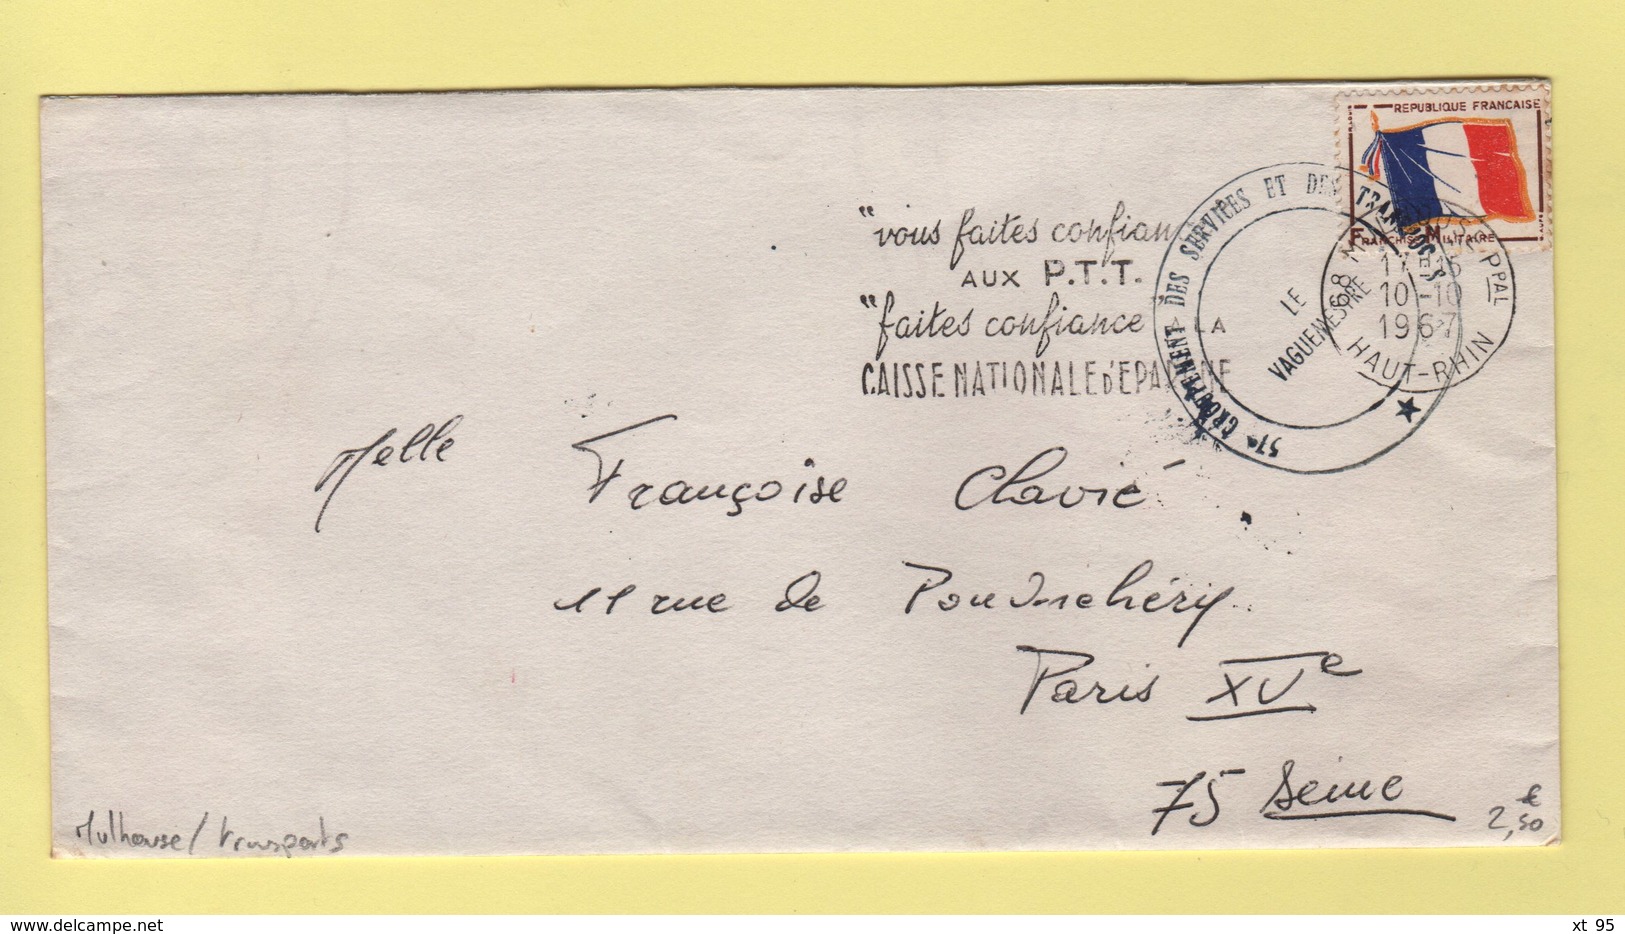 REPUBLIQUE FRANCAISE
FRANCHISE MILITAIRE
"vous faites confian
AUX P.T.T.
"faites confiance A LA
CAISSE NATIONALE D'EPARGNE
57e GROUPEMENT DES SERVICES ET DES
LE
VAGUEMESTRE
68 M PPAL
10-10
1967
HAUT-RHIN
Melle Françoise Clavié
11 rue de Pondichéry
Paris XVe
75 Seine
Mulhouse/transports
2,50 €
xt 95